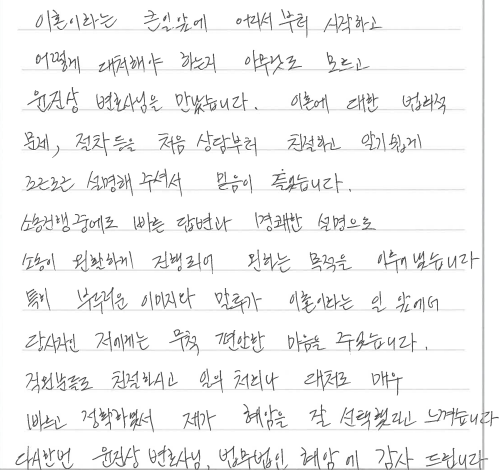 이혼이라는 큰일앞에 어디서 부터 시작하고
어떻게 대처해야 하는지 아무것도 모르고
윤진상 변호사님을 만났습니다. 이혼에 대한 법리적
문제, 절차 등을 처음 상담부터 친절하고 알기쉽게
조근조근 설명해 주셔서 믿음이 들었습니다.
소송진행중에도 빠른 답변과 명쾌한 설명으로
소송이 원활하게 진행되어 원하는 목적을 이루어 냈습니다
특히 부드러운 이미지와 말투가 이혼이라는 일 앞에서
당사자인 저에게는 무척 편안한 마음을 주었습니다.
직원분들도 친절하시고 일의 처리나 대처도 매우
빠르고 정확하셔서 제가 혜암을 잘 선택했다고 느껴졌습니다
다시한번 윤진상 변호사님, 법무법인 혜암에 감사 드립니다